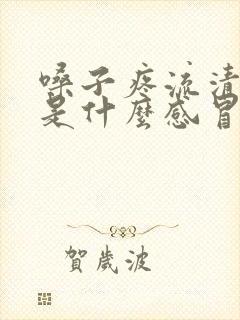 嗓子疼流清
是什麼感冒
賀歲波